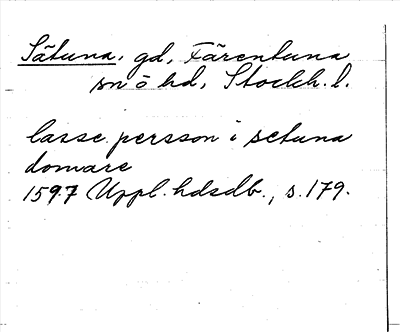 Sätuna, gd, Färentuna
sn o hd, Stockh. l.
lasse persson i setuna
domare
1597 Uppl. hdsdb., s. 179.